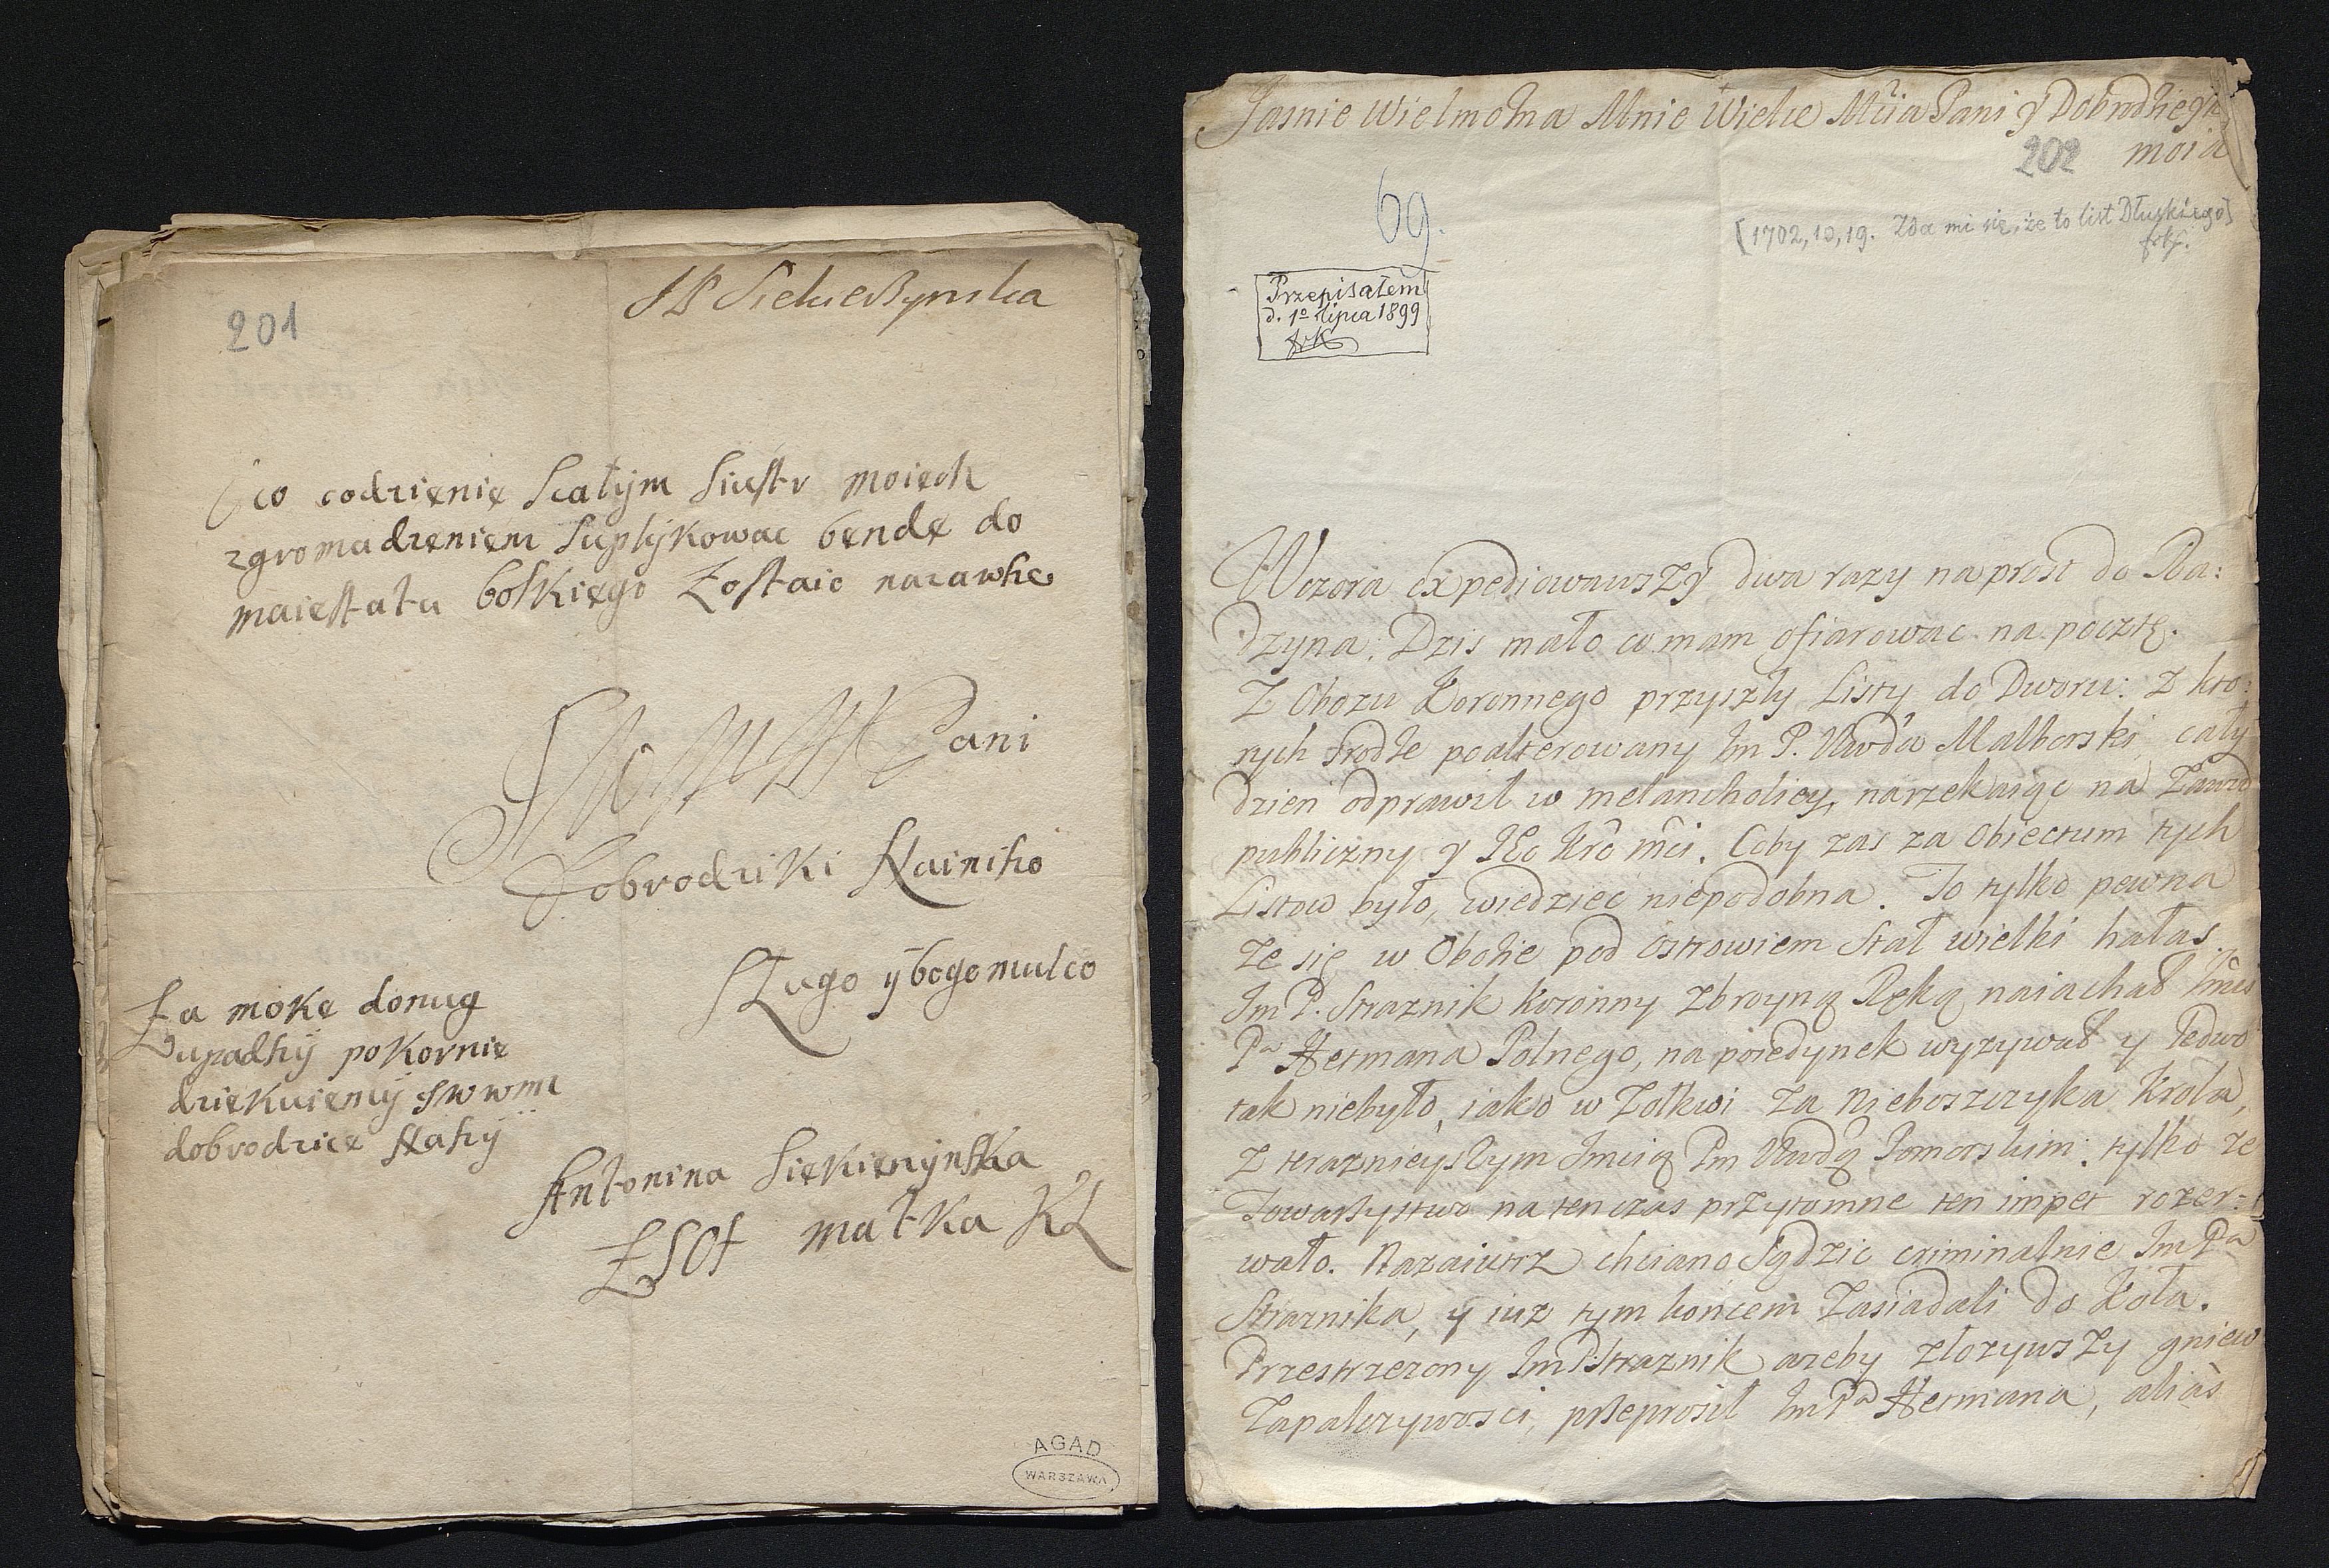 201
Siekierzynska
o co codzienię scałym siestr moiech
zgromadzęnięm suplykowac bendę do
maiestatu boskięgo zostaic nazawhe
Pani
Dobrodziki Nainiho
sługo y bogomulco
za mokę donug
upadhÿ pokornię
dziękuięmÿ JWWM
dobrodzice Nahÿ
Antonina Siękierzÿnska
ZSOf matka KL
AGAD
WARSZAWA
Jasnie Wielmozna Mnie Wielce Mćia Pani y Dobrodzieyk
moia
202
69.
[1702,10,19. Zda mi się, że to list Dłuskiego]
frk.
Przepisałem
d. 1º lipca 1899
frK
Wczora expediowawszy dwa razy na prost do Ra:
dzyna: Dzis mało co mam ofiarowac na pocztę.
Z Obozu Koronnego przyszły Listy do Dworu: z kto:
rych srodze poalterowany Im P. Wwda Malborski cały
dzien odprawił w melancholiey, narzekaiąc na zawod
publiczny y JKo Kro mci. Coby zas za Obiectum tych
Listow było, wiedziec niepodobna. To tylko pewna
ze się w Obozie pod Ostrowiem stał wielki hałas.
Im P. Straznik koronny zbroyną Ręką naiachał Imci
Pa Hetmana Polnego, na poiedynek wyzywał y ledwo
tak niebyło, iako w Zołkwi za Nieboszczyka Krola,
z teraznieyszym Imcią Pm Wwdą Pomorskim: tylko ze
Towarzystwo na ten czas przytomne ten impet rozer:
wało. Nazaiutrz chciano sądzic criminalnie Im Pa
Straznika, y iuz tym koncem zasiadali do Koła.
Przestrzezony Im P. Straznik azeby złozywszy gniew
zapalczywosci, przeprosił Im Pa Hetmana, alias